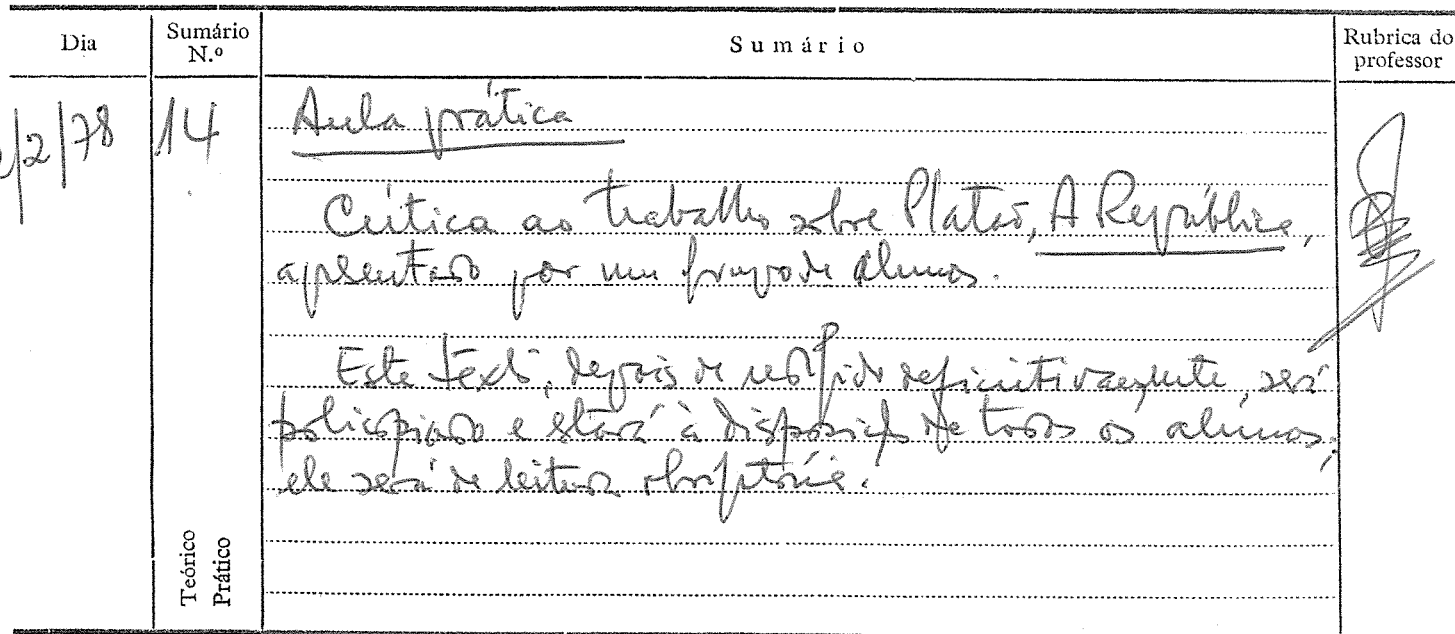 Dia
Sumário N.º
Sumário
Rubrica do professor
/2/78
14
Aula prática
Crítica ao trabalho sobre Platão, A República,
apresentado por um grupo de alunos.
Este texto, depois de redigido definitivamente, será
policopiado e estará à disposição de todos os alunos;
ele será de leitura obrigatória.
Teórico
Prático